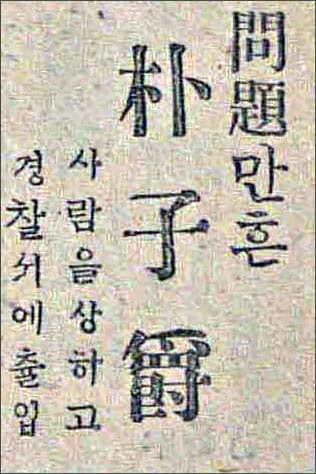 問題만흔
朴子爵
사람을상하고
경찰서에출입